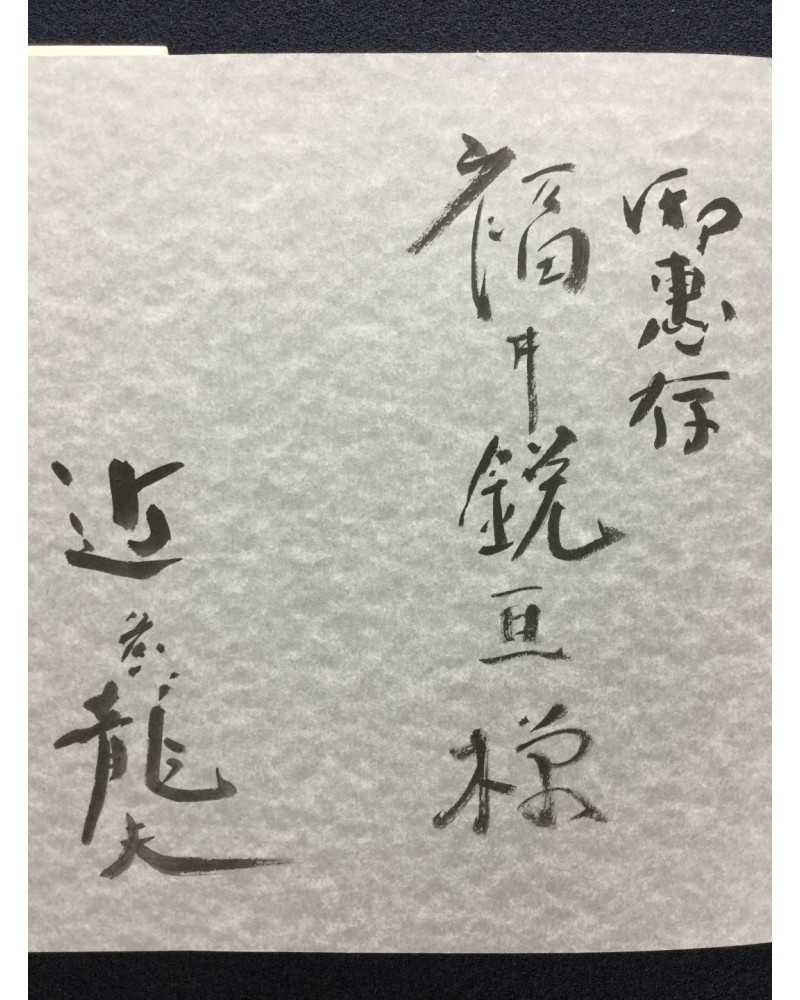 御恵存
福井鋭亘様
近藤龍夫